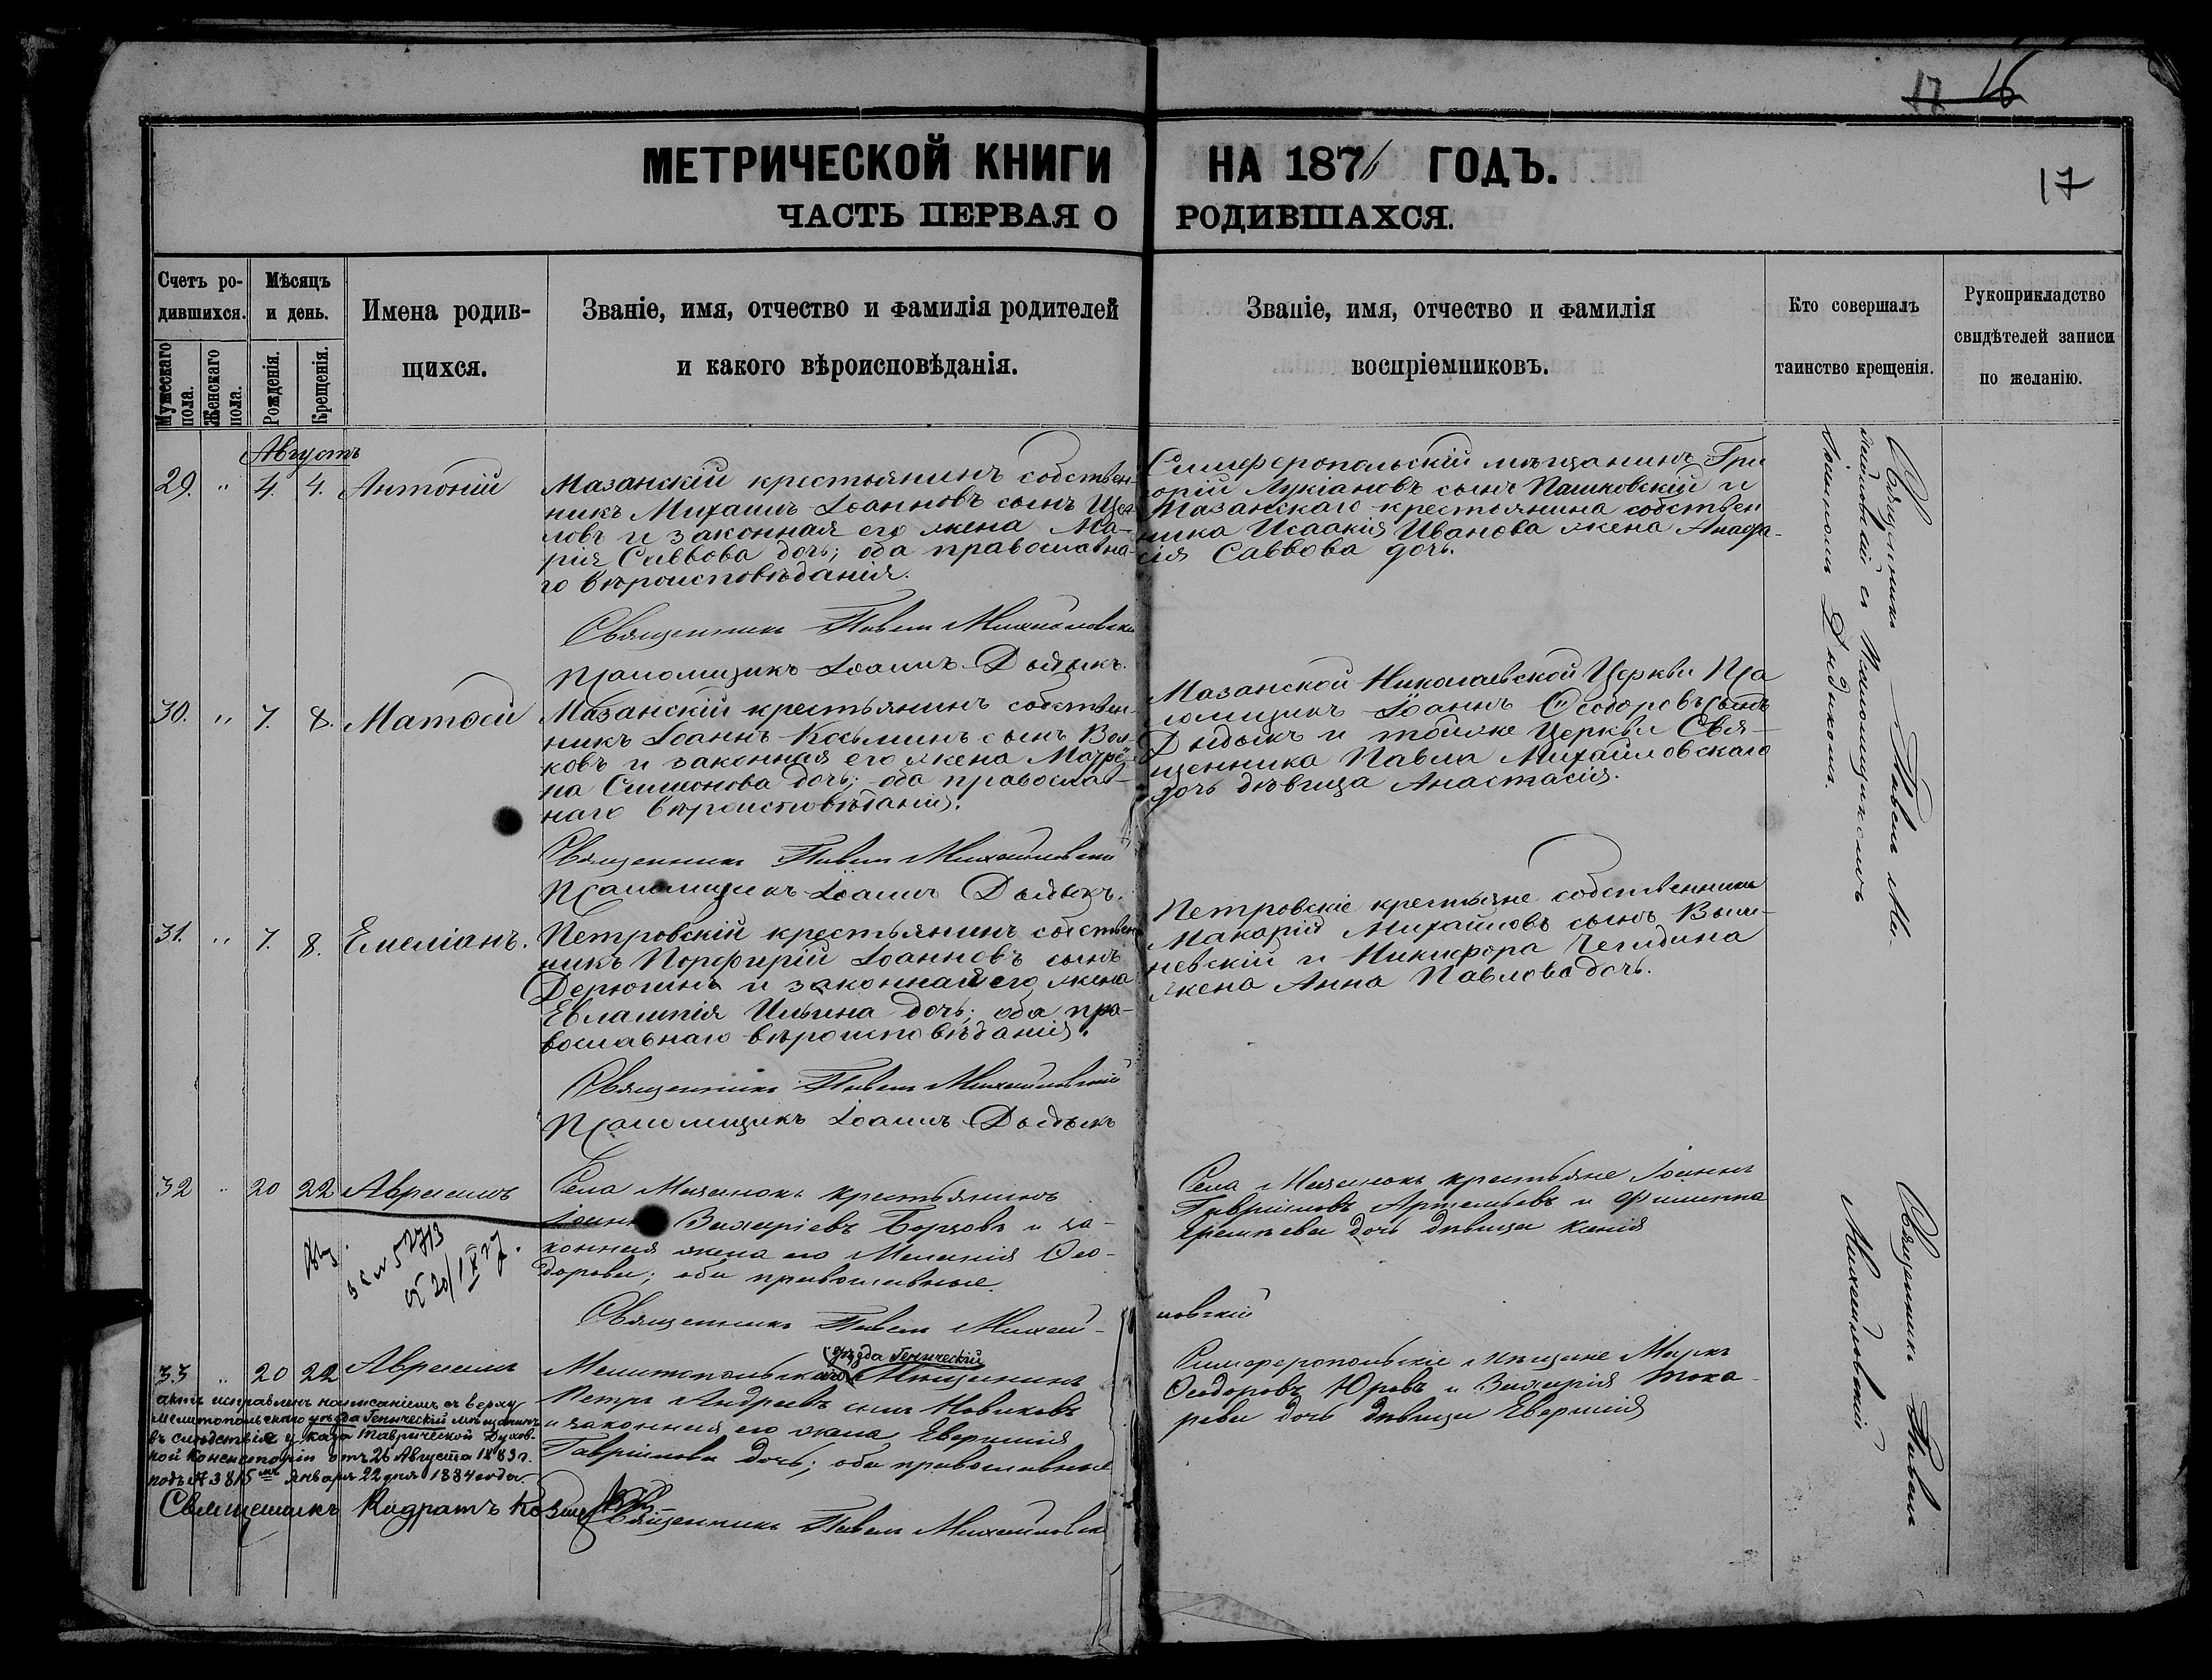 17 16
МЕТРИЧЕСКОЙ КНИГИ НА 1876 ГОДЪ.
17
ЧАСТЬ ПЕРВАЯ О РОДИВШАХСЯ.
Счетъ родившихся.
Мужескаго пола.
Женскаго пола.
Мѣсяцъ и день.
Рожденія.
Крещенія.
Имена родив-
щихся.
Званіе, имя, отчество и фамилія родителей
и какого вѣроисповѣданія.
Званіе, имя, отчество и фамилія
воспріемниковъ.
Кто совершалъ
таинство крещенія.
Рукоприкладство
свидѣтелей записи
по желанію.
Августъ
29. " 4. 4. Антоній
Мазанскій крестьянинъ собствен-
никъ Михаилъ Іоанновъ сынъ
ловъ и законная его жена Ма-
рія Саввова дочь; оба православна-
го вѣроисповѣданія.
Священникъ Павелъ Михайловскій
Псаломщикъ Іоаннъ Дыдыкъ.
Симферопольскій мѣщанинъ Гри
орій Лукіановъ сынъ Пашковскій и
Мазанскаго крестьянина собствен
ника Исаакія Иванова жена Анафа-
сія Саввова дочь.
30. " 7. 8. Матѳей
Мазанскій крестьянинъ собствен-
никъ Іоаннъ Косьминъ сынъ Вол-
ковъ и законная его жена Матрё-
на Симонова дочь; оба православ-
наго вѣроисповѣданія.
Священникъ Павелъ Михайловскій
Псаломщикъ Іоаннъ Дыдыкъ.
Мазанской Николаевской Церкви Пса
ломщикъ Іоаннъ Ѳеодоровъ сынъ
Дыдыкъ и тойже Церкви Свя-
щенника Павла Михайловскаго
дочь дѣвица Анастасія.
31. " 7. 8. Емеліанъ.
Петровскій крестьянинъ собствен
никъ Порфирій Іоанновъ сынъ
Дерюгинъ и законная его жена
Евлампія Ильина дочь; оба пра-
вославнаго вѣроисповѣданія.
Священникъ Павелъ Михайловскій
Псаломщикъ Іоаннъ Дыдыкъ
Петровскіе крестьяне собственники
Макарій Михайловъ сынъ
невскій и Никифора
жена Анна Павлова дочь.
Священникъ Павелъ Ми-
хайловскій съ Псаломщикомъ
Іоанномъ Дыдыкомъ.
32 " 20 22 Авраамъ
Села Мазанокъ крестьянинъ
Іоаннъ Захаріевъ Борзовъ и за-
конная жена его Меланія Ѳео-
дорова; оба православные.
Священникъ Павелъ Михай-
ловскій
Села Мазанокъ крестьяне Іоаннъ
Гавріиловъ Артемьевъ и Филиппа
Еремѣева дочь дѣвица Ксенія
20/IX 27.
33 " 20 22 Авраамъ
уѣзда Геническій
Мелитопольскаго Мѣщанинъ
Петръ Андреевъ сынъ Новиковъ
и законная его жена Евгенія
Гавріилова дочь; оба православные
Священникъ Павелъ Михайловскій
Симферопольскіе мѣщане Маркъ
Ѳеодоровъ Юровъ и Захарія Тока-
рева дочь дѣвица Евгенія
актъ исправленъ написаніемъ съ верху
Мелитопольскаго уѣзда Геническій мѣщанинъ
въ слѣдствіе указа Таврической Духов-
ной Консисторіи отъ 26 Августа 1883 г.
подъ № 3815 мъ Января 22 дня 1884 года.
Священникъ Кодратъ
Священникъ Павелъ
Михайловскій